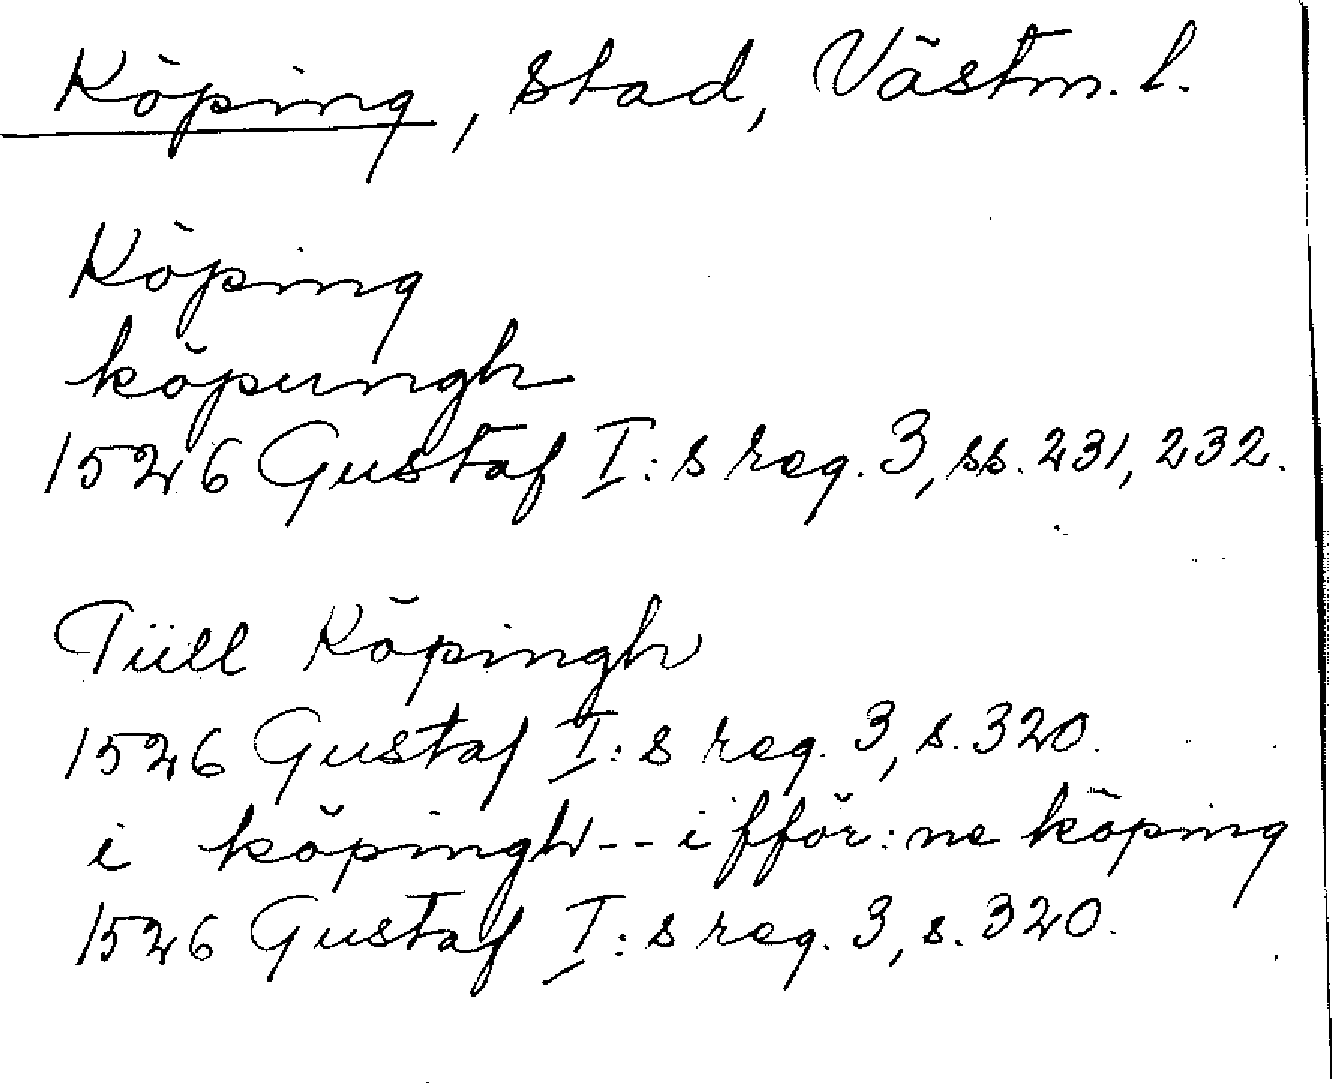 Köping, stad, Västm. l.
Köping
köpungh
1526 Gustaf I:s reg. 3, ss. 231, 232.
Tüll Köpingh
1526 Gustaf I:s reg. 3, s. 320.
i köpingh -- i fför:ne köping
1526 Gustaf I:s reg. 3, s. 320.